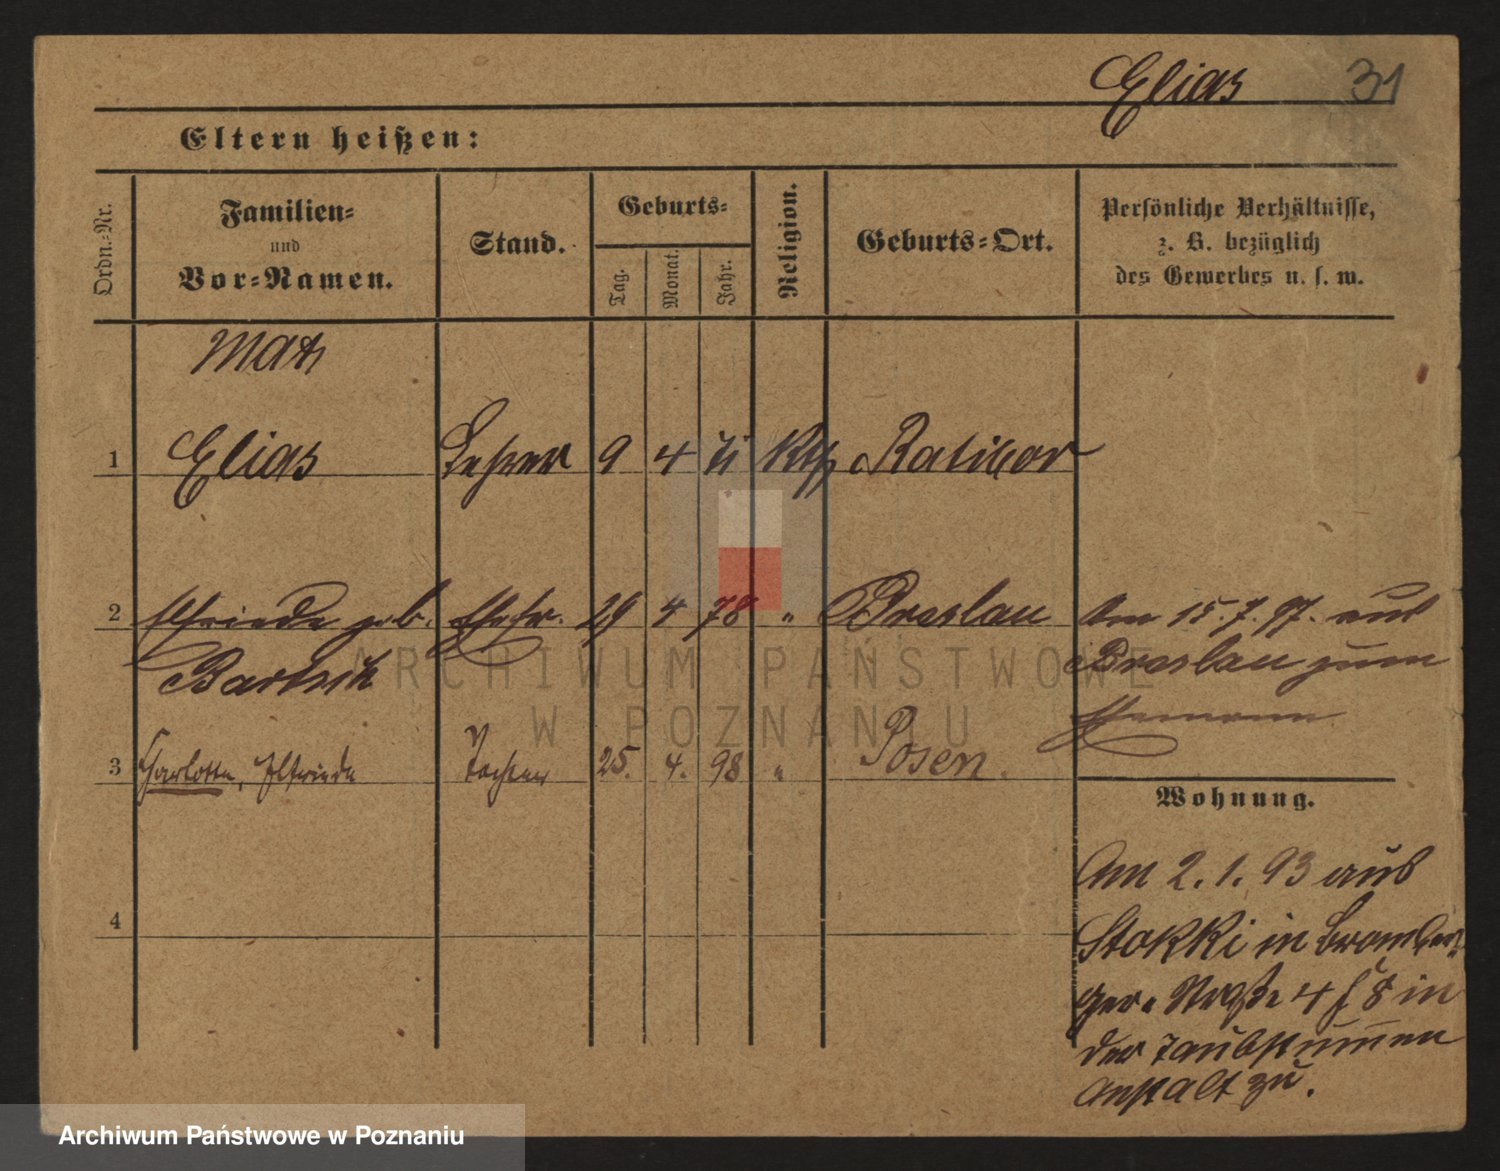 Elias 31
Eltern heißen:
Ordn.-Nr.
Familien-
und
Vor-Namen.
Stand.
Geburts-
Tag.
Monat.
Jahr.
Religion.
Geburts-Ort.
Persönliche Verhältnisse,
z. B. bezüglich
des Gewerbes u. s. w.
Max
1 Elias Lehrer 9 4 71 Kth Ratibor
2 Elfriede geb. Ehefr. 29 4 78 " Breslau
Bartsch
Am 15.7.97. aus
Breslau zum
Ehemann.
3 Charlotte, Elfriede Tochter 25. 4. 98 " Posen.
Wohnung.
Am 2.1.93 aus
Stokki in Bromber-
ger-Straße 4 f 8 in
der Taubstummen
Anstalt zu.
4
ARCHIWUM PAŃSTWOWE
W POZNANIU
Archiwum Państwowe w Poznaniu